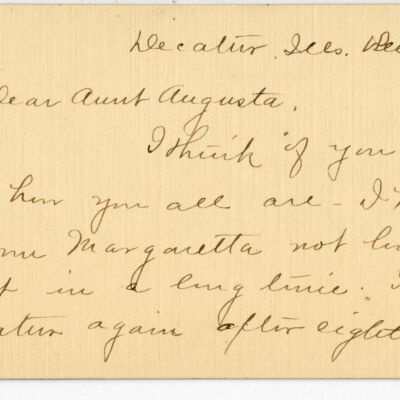 Decatur, Ills. Dec
Dear Aunt Augusta,
I think of you
how you all are - I
Margaretta not
in a long time.
again after eight